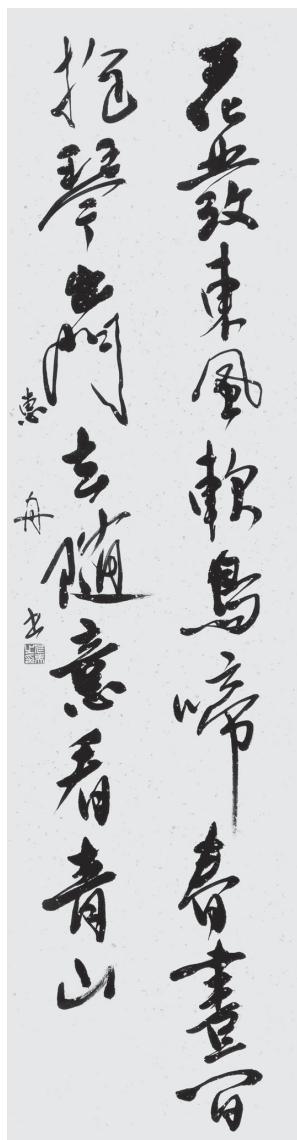 花發東風軟鳥啼春晝間
抱琴出門去隨意看青山
惠舟書